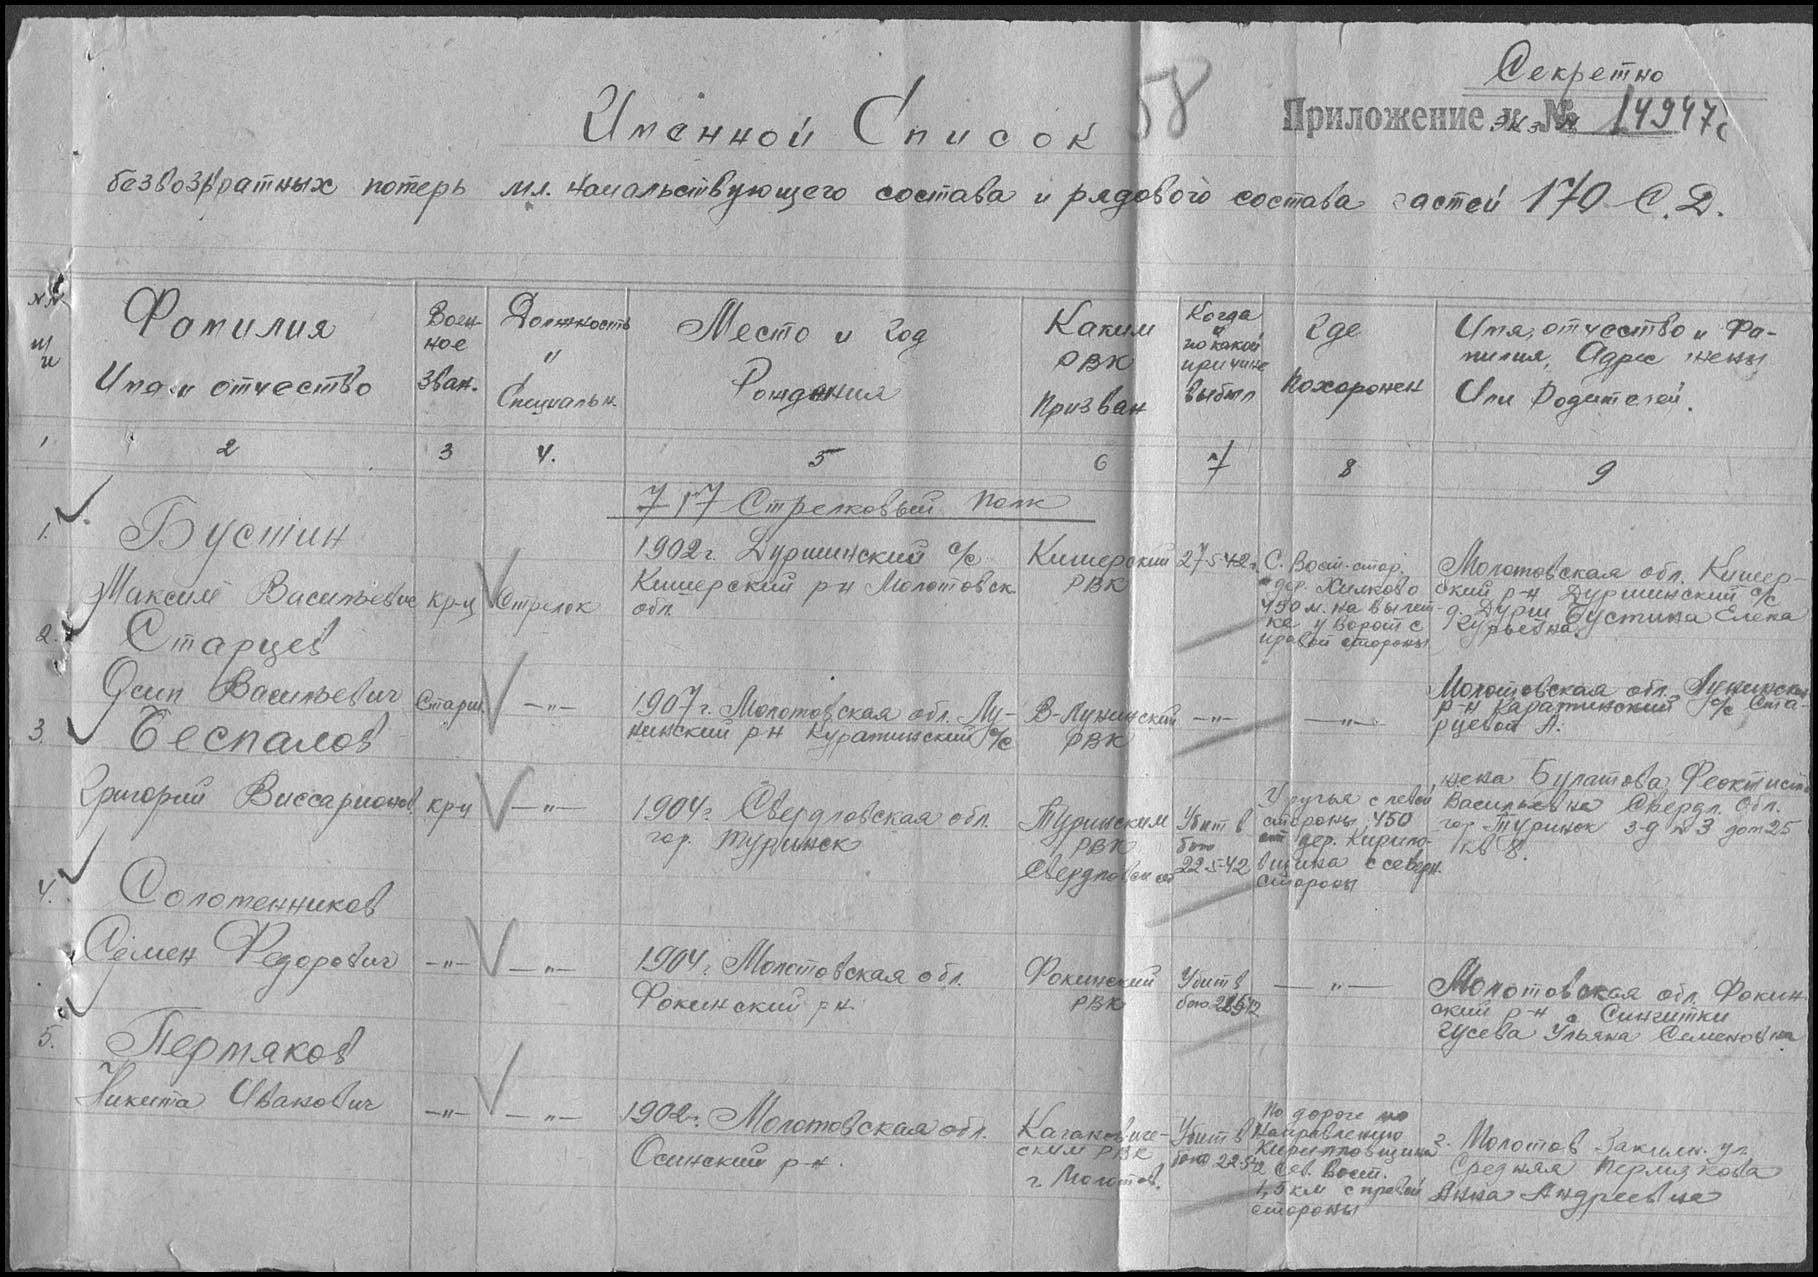 Секретно
58
Приложение к № 14947с
экз №
Именной Список
безвозвратных потерь мл. начальствующего состава и рядового состава частей 170 С.Д.
№№ п/п
Фамилия Имя и отчество
Военное Зван.
Должность и Специальн.
Место и год Рождения
Каким РВК Призван
Когда и по какой причине выбыл
Где Похоронен
Имя, отчество и Фамилия, Адрес жены Или Родителей.
1 2 3 4. 5 6 7 8 9
717 Стрелковый полк
1. Бустин
Максим Васильевич
кр-ц
Стрелок
1902 г. Дуршинский с/с
Кишерский р-н Молотовск.
обл.
Кишерский
РВК
27-5-42 г.
С. Вост. стор.
дер. Хилково
450 м. на
ке у ворот с
правой стороны
Молотовская обл. Кишер-
ский р-н Дуршинский с/с
д. Дурш Бустина Елена
2. Старцев
Осип Васильевич
Старш.
—"—
1907 г. Молотовская обл. Лу-
нинский р-н Куратинский с/с
В-Лунинский
РВК
—"—
—"—
Молотовская обл. Лунинский
р-н Каратинский с/с Ста-
рцевой А.
3. Беспалов
Григорий Виссарионов.
кр-ц
—"—
1904 г. Свердловская обл.
гор. Туринск
Туринским
РВК
Свердловск об
Убит в
бою
22-5-42
У ручья с левой
стороны 450
от дер. Кирило-
вщина с северн.
стороны
жена Булатова Феоктиста
Васильевна Свердл. Обл.
гор. Туринск з-д № 3 дом 25
кв 8.
4. Солотенников
Семен Федорович
—"—
—"—
1904 г. Молотовская обл.
Фокинский р-н
Фокинский
РВК
Убит в
бою
—"—
Молотовская обл. Фокин-
ский р-н с. Сингитки
Гусева Ульяна Семеновна
5. Пермяков
Никита Иванович
—"—
—"—
1902 г. Молотовская обл.
Осинский р-н.
Каганович-
ским РВК
г. Молотов.
Убит в
бою 22-5-42
По дороге по
Направлению
Кирилловщина
Сев. Вост.
1,5 км с правой
стороны
г. Молотов Закамн. ул
Средняя Пермякова
Анна Андреевна